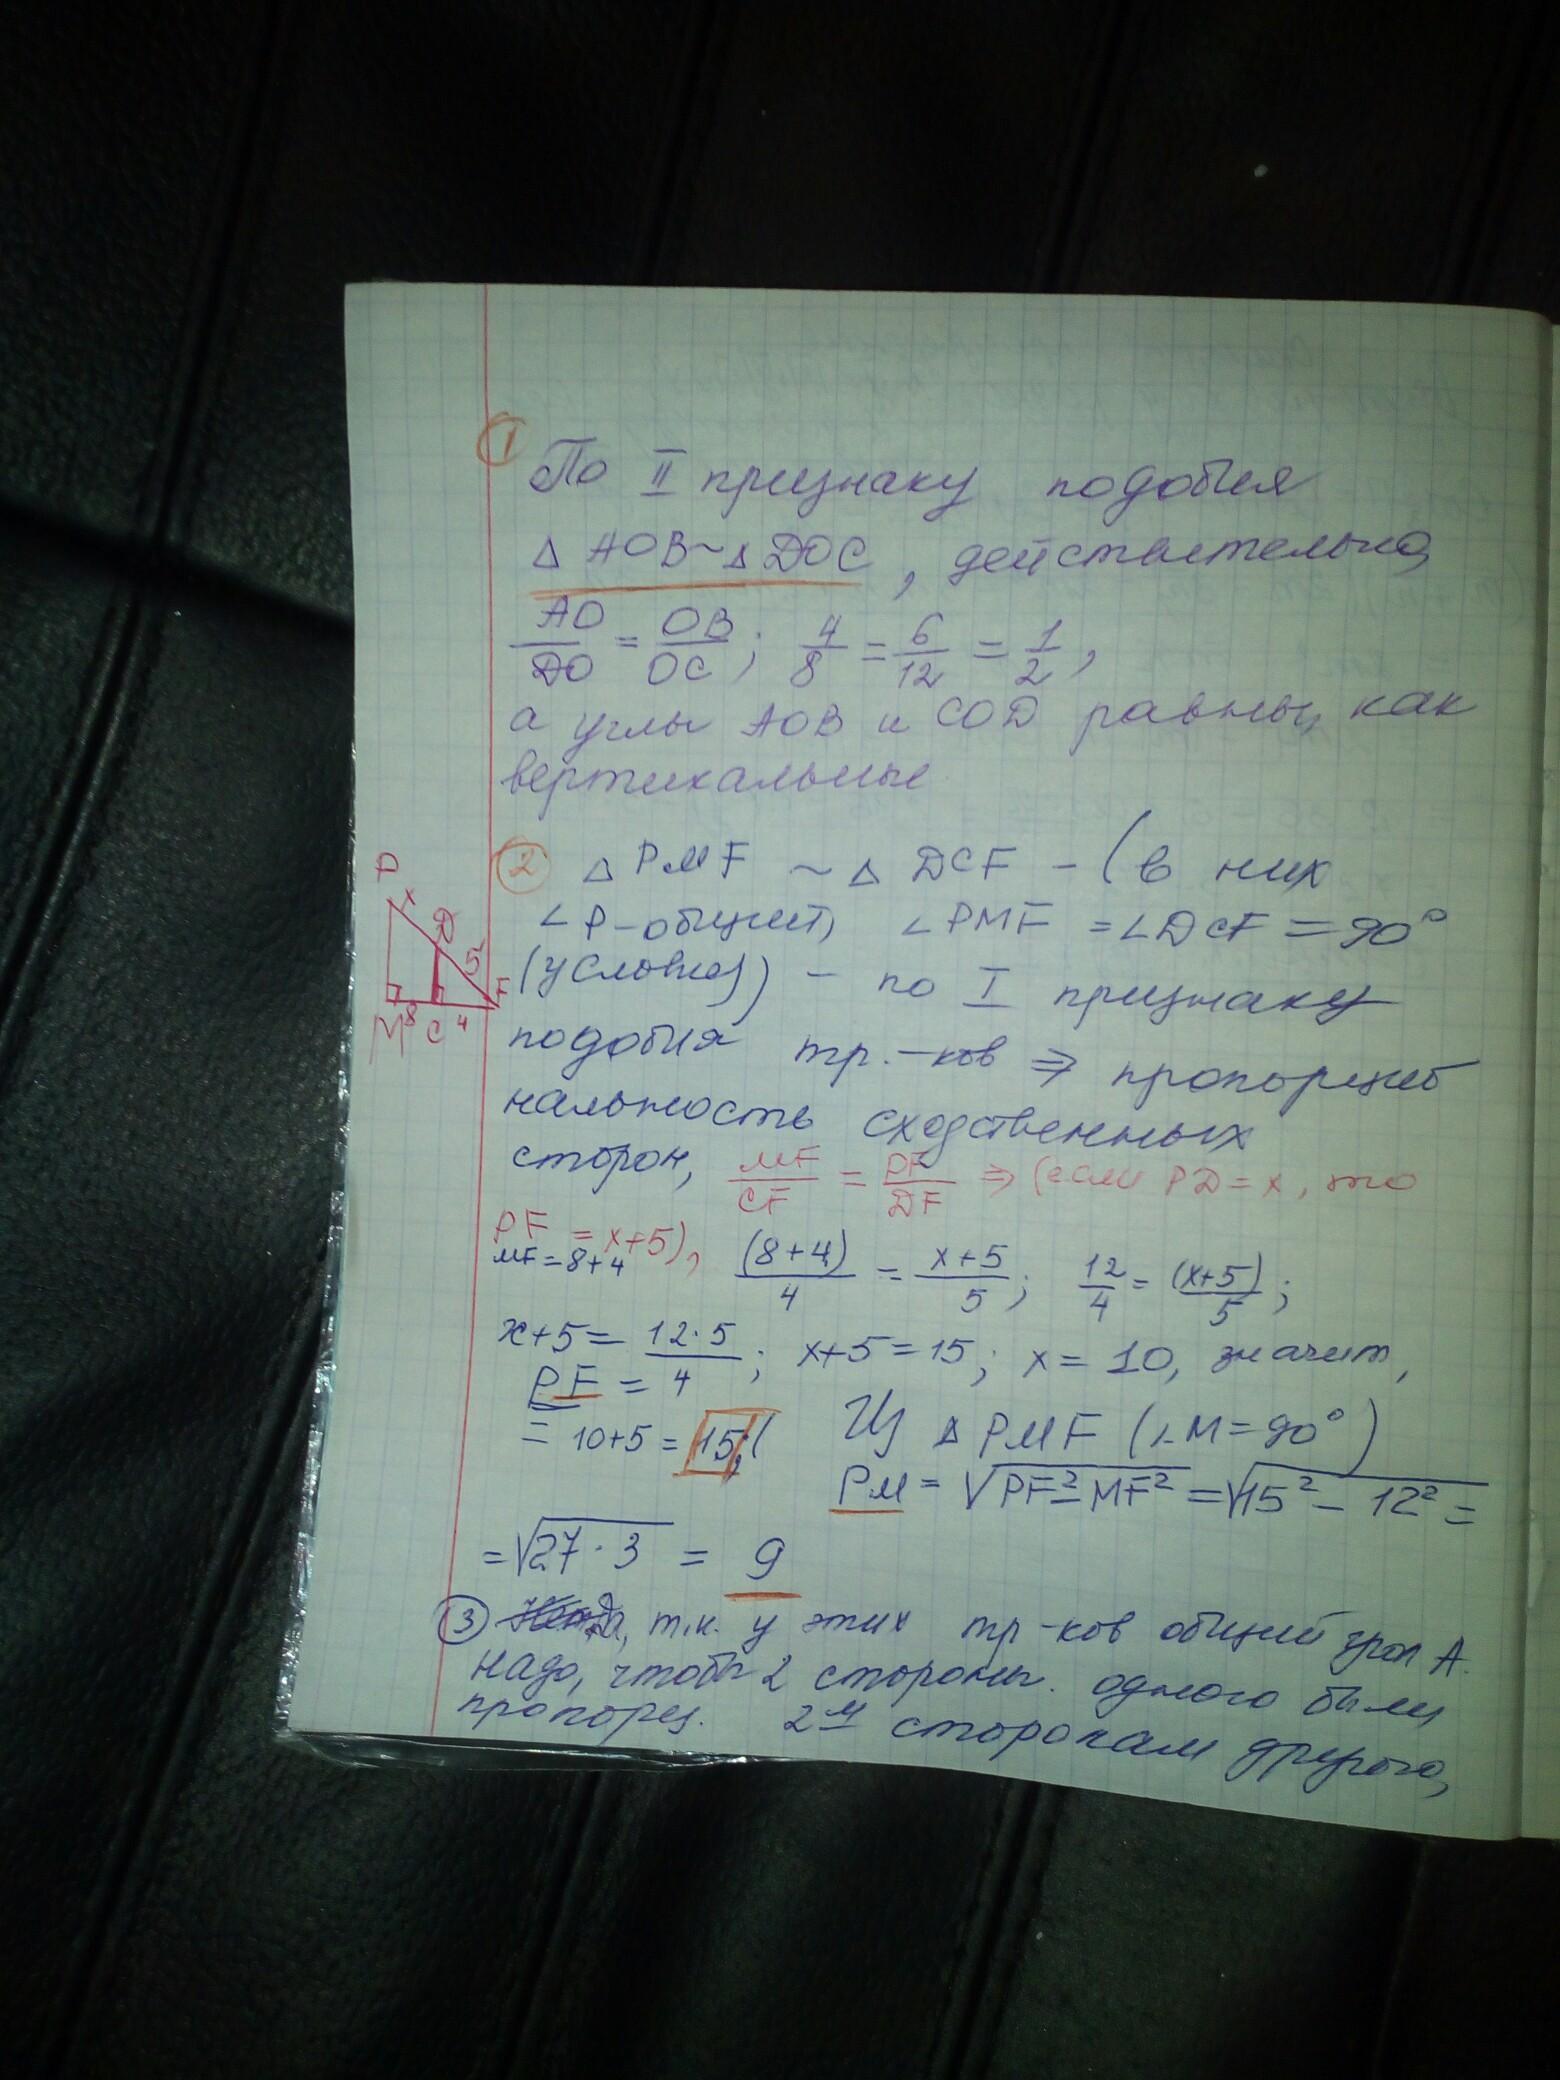 1
По II признаку подобия
Δ AOB ~ Δ DOC, действительно,
AO/DO = OB/OC; 4/8 = 6/12 = 1/2,
а углы AOB и COD равны, как
вертикальные
2 Δ PMF ~ Δ DCF – (в них
∠P-общий, ∠PMF = ∠DCF = 90°
(условие)) – по I признаку
подобия тр.-ков ⇒ пропорцио
нальность сходственных
сторон, MF/CF = PF/DF ⇒ (если PD = x, то
PF = x+5),
MF = 8+4
(8+4)/4 = x+5/5; 12/4 = (x+5)/5;
x+5 = 12·5/4; x+5 = 15; x = 10, значит,
PF =
= 10+5 = 15;
Из Δ PMF (∠M = 90°)
PM = √PF²-MF² = √15² – 12² =
= √27·3 = 9
3 Да, т.к. у этих тр-ков общий угол A.
надо, чтобы 2 стороны. одного были
пропорц. 2м сторонам другого,
P
x
D
5
F
M 8 C 4